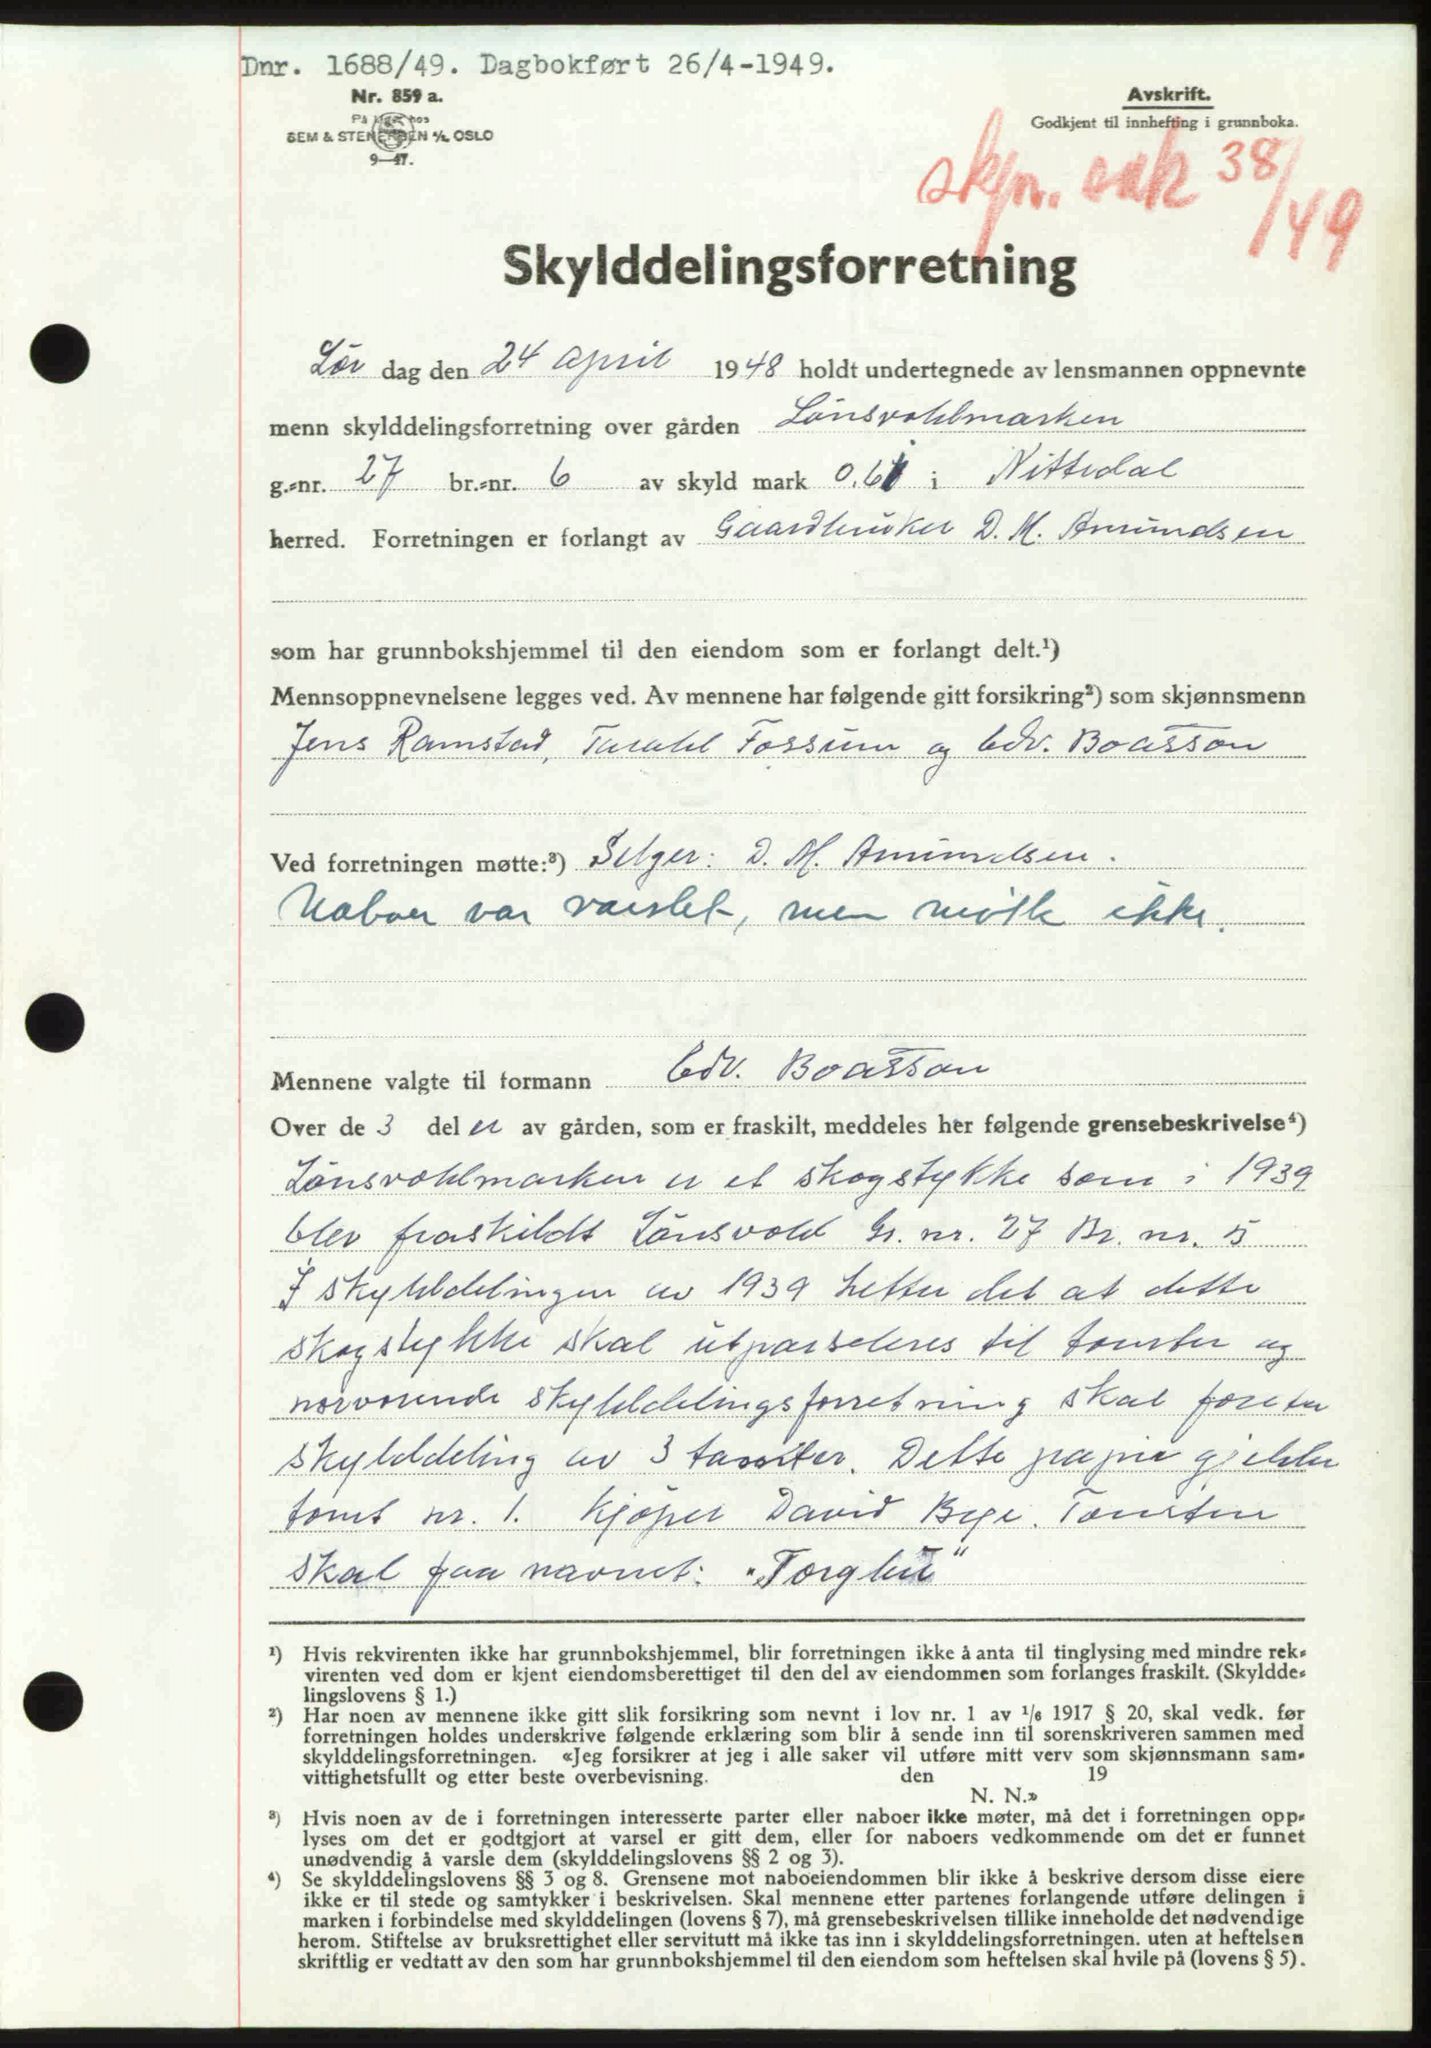 Dnr. 1688/49. Dagbokført 26/4-1949.
Nr. 859 a.
SEM & STENERSEN A/S, OSLO
9—47.
Avskrift.
Godkjent til innhefting i grunnboka.
skjn. sak 38/49
Skylddelingsforretning
Lör dag den 24 april 1948 holdt undertegnede av lensmannen oppnevnte
menn skylddelingsforretning over gården Lönsvoldmarken
g.-nr. 27 br.-nr. 6 av skyld mark 0.61 i Nittedal
herred. Forretningen er forlangt av Gaardbruker D. M. Amundsen
som har grunnbokshjemmel til den eiendom som er forlangt delt.¹)
Mennsoppnevnelsene legges ved. Av mennene har følgende gitt forsikring²) som skjønnsmenn
Jens Ramstad, Fossum og Edv. Boasson
Ved forretningen møtte:³) Selger: D. M. Amundsen.
Naboer var varslet, men møtte ikke.
Mennene valgte til formann Edv. Boasson
Over de 3 del er av gården, som er fraskilt, meddeles her følgende grensebeskrivelse⁴)
Lönsvoldmarken er et skogstykke som i 1939
blev fraskildt Lönsvold Gr. nr. 27 Br. nr. 5
I skylddelingen av 1939 hetter det at dette
skogstykke skal utparseleres til tomter og
nærværende skylddelingsforretning skal foreta
skylddeling av 3 tomter. Dette papir gjelder
tomt nr. 1. Kjöper David Bye. Tomten
skal faa navnet: "Torgbu"
¹) Hvis rekvirenten ikke har grunnbokshjemmel, blir forretningen ikke å anta til tinglysing med mindre rek-
virenten ved dom er kjent eiendomsberettiget til den del av eiendommen som forlanges fraskilt. (Skyldde-
lingslovens § 1.)
²) Har noen av mennene ikke gitt slik forsikring som nevnt i lov nr. 1 av ¹/₆ 1917 § 20, skal vedk. før
forretningen holdes underskrive følgende erklæring som blir å sende inn til sorenskriveren sammen med
skylddelingsforretningen. «Jeg forsikrer at jeg i alle saker vil utføre mitt verv som skjønnsmann sam-
vittighetsfullt og etter beste overbevisning. den 19
N. N.»
³) Hvis noen av de i forretningen interesserte parter eller naboer ikke møter, må det i forretningen opp-
lyses om det er godtgjort at varsel er gitt dem, eller for naboers vedkommende om det er funnet
unødvendig å varsle dem (skylddelingslovens §§ 2 og 3).
⁴) Se skylddelingslovens §§ 3 og 8. Grensene mot naboeiendommen blir ikke å beskrive dersom disse eiere
ikke er til stede og samtykker i beskrivelsen. Skal mennene etter partenes forlangende utføre delingen i
marken i forbindelse med skylddelingen (lovens § 7), må grensebeskrivelsen tillike inneholde det nødvendige
herom. Stiftelse av bruksrettighet eller servitutt må ikke tas inn i skylddelingsforretningen. uten at heftelsen
skriftlig er vedtatt av den som har grunnbokshjemmel til den eiendom som heftelsen skal hvile på (lovens § 5).